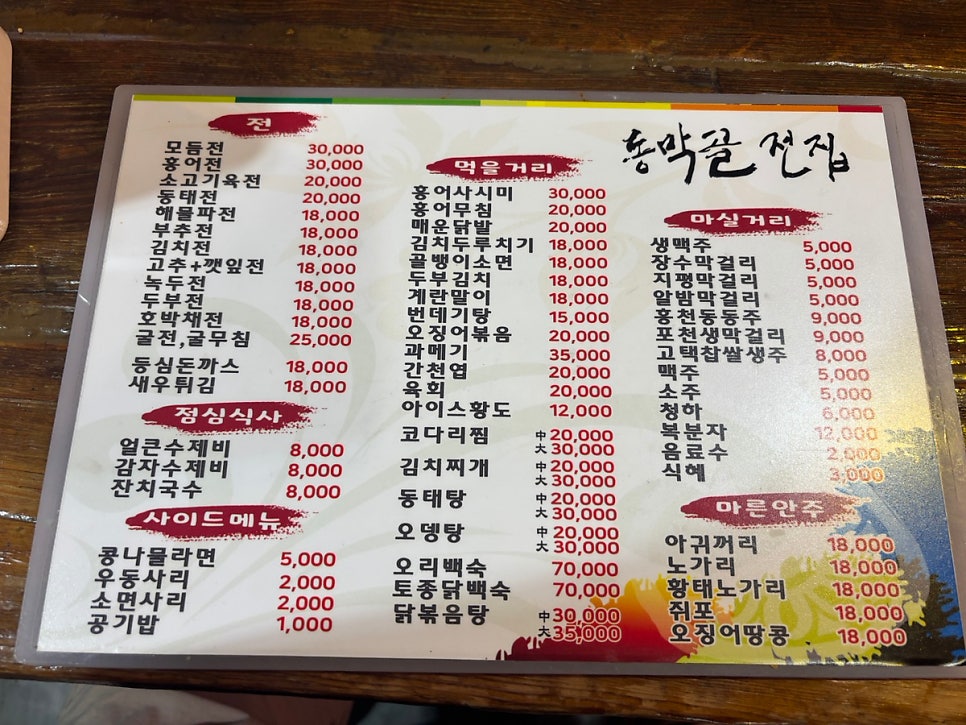 동막골 전집
전
모듬전 30,000
홍어전 30,000
소고기육전 20,000
동태전 20,000
해물파전 18,000
부추전 18,000
김치전 18,000
고추+깻잎전 18,000
녹두전 18,000
두부전 18,000
호박채전 18,000
굴전,굴무침 25,000
등심돈까스 18,000
새우튀김 18,000
점심식사
얼큰수제비 8,000
감자수제비 8,000
잔치국수 8,000
사이드메뉴
콩나물라면 5,000
우동사리 2,000
소면사리 2,000
공기밥 1,000
먹을거리
홍어사시미 30,000
홍어무침 20,000
매운닭발 20,000
김치두루치기 18,000
골뱅이소면 18,000
두부김치 18,000
계란말이 18,000
번데기탕 15,000
오징어볶음 20,000
과메기 35,000
간천엽 20,000
육회 20,000
아이스황도 12,000
코다리찜 中 20,000
大 30,000
김치찌개 中 20,000
大 30,000
동태탕 中 20,000
大 30,000
오뎅탕 中 20,000
大 30,000
오리백숙 70,000
토종닭백숙 70,000
닭볶음탕 中 30,000
大 35,000
마실거리
생맥주 5,000
장수막걸리 5,000
지평막걸리 5,000
알밤막걸리 5,000
홍천동동주 9,000
포천생막걸리 9,000
고택찹쌀생주 8,000
맥주 5,000
소주 5,000
청하 6,000
복분자 12,000
음료수 2,000
식혜 3,000
마른안주
아귀꺼리 18,000
노가리 18,000
황태노가리 18,000
쥐포 18,000
오징어땅콩 18,000